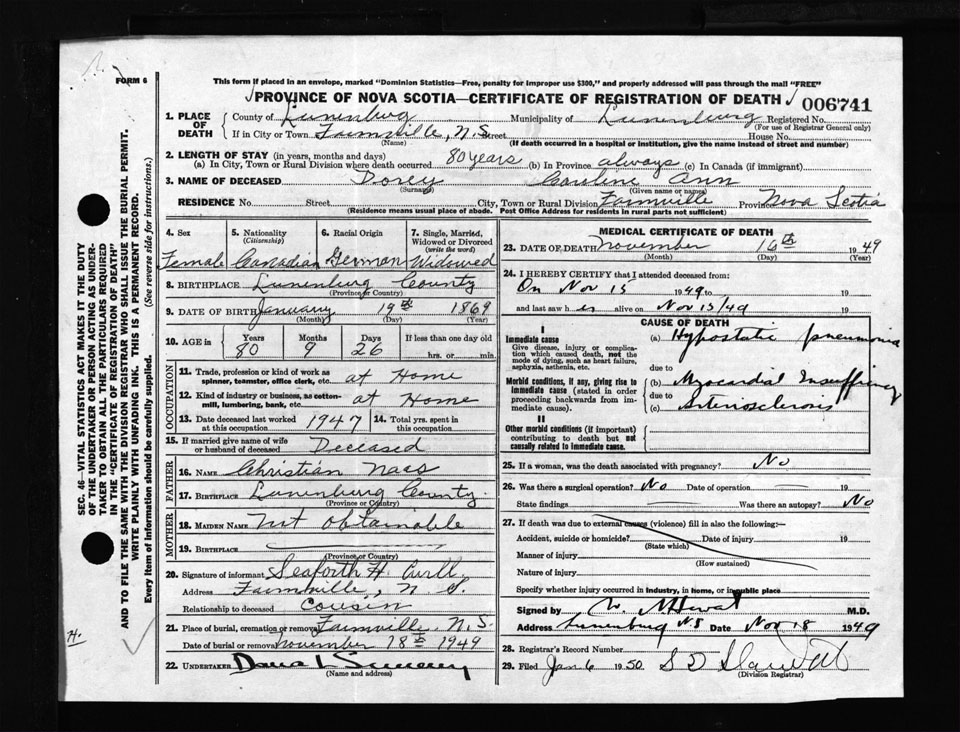 FORM 6
This form if placed in an envelope, marked "Dominion Statistics—Free, penalty for improper use $300," and properly addressed will pass through the mail "FREE"
PROVINCE OF NOVA SCOTIA—CERTIFICATE OF REGISTRATION OF DEATH 006741
1. PLACE OF DEATH
County of Lunenburg Municipality of Lunenburg Registered No.
(For use of Registrar General only)
If in City or Town Farmville, N.S. Street House No.
(Name) (If death occurred in a hospital or institution, give the name instead of street and number)
2. LENGTH OF STAY (in years, months and days)
(a) In City, Town or Rural Division where death occurred 80 years (b) In Province always (c) In Canada (if immigrant)
3. NAME OF DECEASED Dorey Caroline Ann
(Surname) (Given name or names)
RESIDENCE No. Street City, Town or Rural Division Farmville Province Nova Scotia
(Residence means usual place of abode. Post Office Address for residents in rural parts not sufficient)
4. Sex
Female
5. Nationality
(Citizenship)
Canadian
6. Racial Origin
German
7. Single, Married, Widowed or Divorced
(write the word)
Widowed
8. BIRTHPLACE Lunenburg County
(Province or Country)
9. DATE OF BIRTH January 19th 1869
(Month) (Day) (Year)
10. AGE in Years Months Days If less than one day old
80 9 26 hrs. or min.
OCCUPATION
11. Trade, profession or kind of work as
spinner, teamster, office clerk, etc. at Home
12. Kind of industry or business, as cotton-
mill, lumbering, bank, etc. at Home
13. Date deceased last worked at this occupation 1947 14. Total yrs. spent in this occupation
15. If married give name of wife or husband of deceased Deceased
FATHER
16. NAME Christian Naas
17. BIRTHPLACE Lunenburg County
(Province or Country)
MOTHER
18. MAIDEN NAME Not obtainable
19. BIRTHPLACE
(Province or Country)
20. Signature of informant Seaforth H.
Address Farmville, N.S.
Relationship to deceased Cousin
21. Place of burial, cremation or removal Farmville N.S.
Date of burial or removal November 18th 1949
22. UNDERTAKER
(Name and address)
MEDICAL CERTIFICATE OF DEATH
23. DATE OF DEATH November 16th 1949
(Month) (Day) (Year)
24. I HEREBY CERTIFY that I attended deceased from:
On Nov 15 1949 to 19
and last saw h er alive on Nov 15/49 19
CAUSE OF DEATH
I
Immediate cause
Give disease, injury or complication which caused death, not the mode of dying, such as heart failure, asphyxia, asthenia, etc.
(a) Hypostatic pneumonia
due to
Morbid conditions, if any, giving rise to immediate cause (stated in order proceeding backwards from immediate cause).
(b) Myocardial Insufficiency
due to
(c) Arteriosclerosis
II
Other morbid conditions (if important) contributing to death but not causally related to immediate cause.
25. If a woman, was the death associated with pregnancy? No
26. Was there a surgical operation? No Date of operation
State findings Was there an autopsy? No
27. If death was due to external causes (violence) fill in also the following:—
Accident, suicide or homicide? Date of injury 19
(State which)
Manner of injury
(How sustained)
Nature of injury
Specify whether injury occurred in industry, in home, or in public place
Signed by M.D.
Address Lunenburg N.S Date Nov 18 1949
28. Registrar's Record Number
29. Filed Jan 6 1950
(Division Registrar)
SEC. 46—VITAL STATISTICS ACT MAKES IT THE DUTY
OF THE UNDERTAKER OR PERSON ACTING AS UNDER-
TAKER TO OBTAIN ALL THE PARTICULARS REQUIRED
IN THE "CERTIFICATE OF REGISTRATION OF DEATH"
AND TO FILE THE SAME WITH THE DIVISION REGISTRAR WHO SHALL ISSUE THE BURIAL PERMIT.
WRITE PLAINLY WITH UNFADING INK. THIS IS A PERMANENT RECORD.
Every item of information should be carefully supplied. (See reverse side for instructions.)
H.